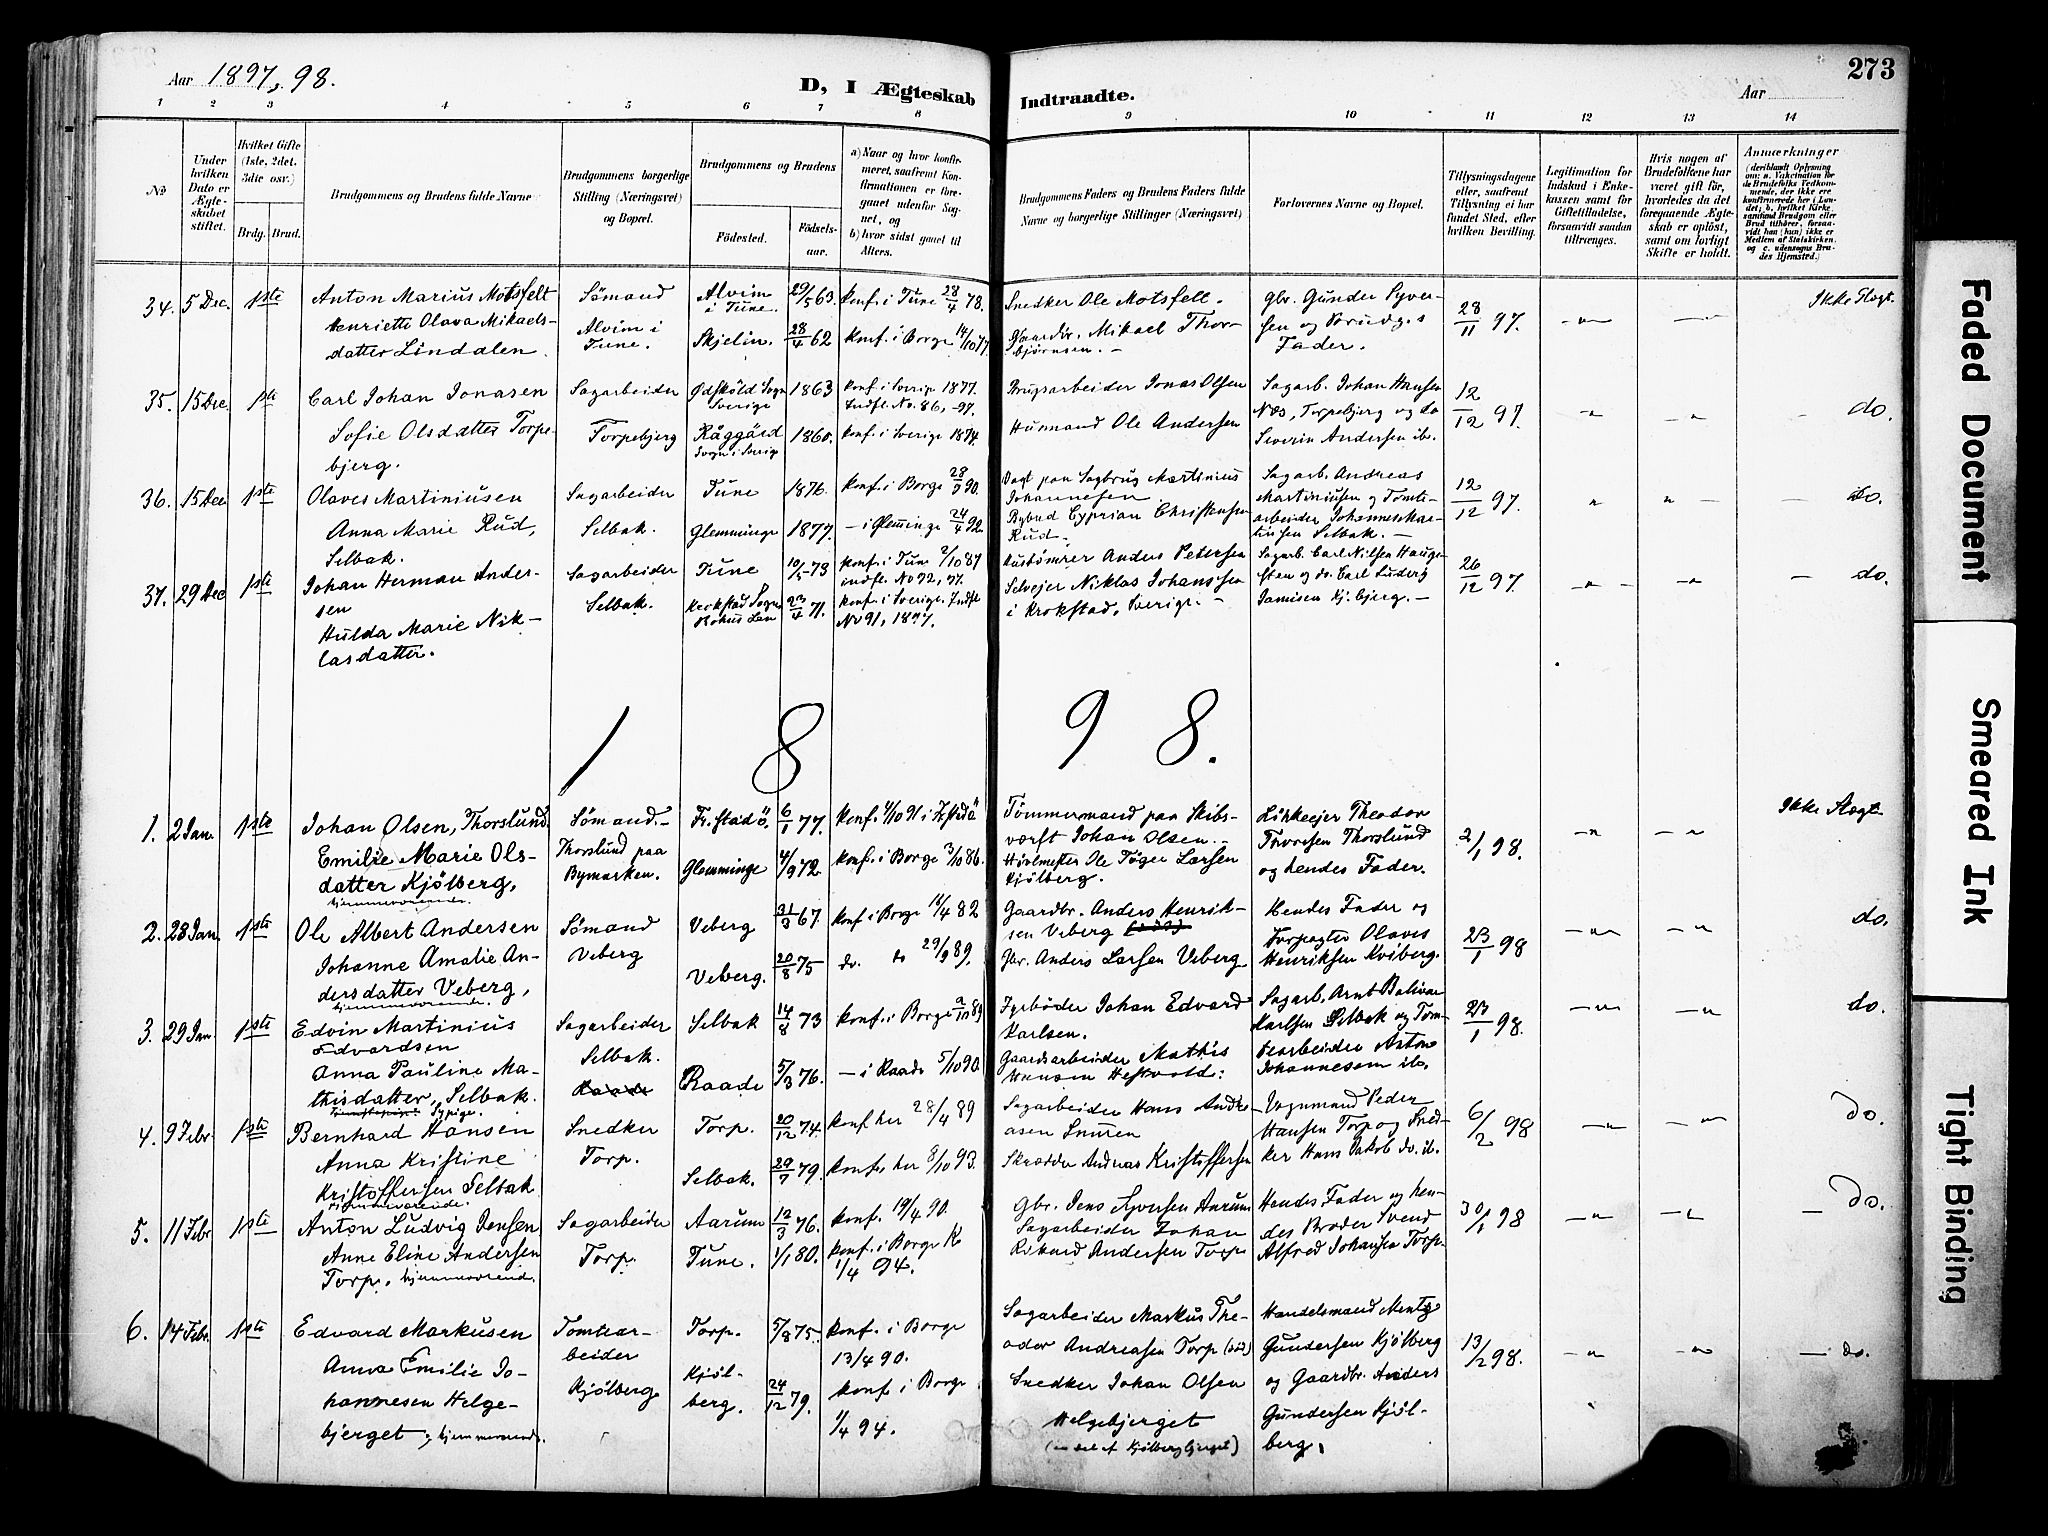 273
Aar 1897, 98.
D, I Ægteskab Indtraadte.
Aar
1 2 3 4 5 6 7 8 9 10 11 12 13 14
No
Under hvilken Dato er Ægteskabet stiftet.
Hvilket Gifte (1ste, 2det, 3die osv.)
Brdg. Brud.
Brudgommens og Brudens fulde Navne
Brudgommens borgerlige Stilling (Næringsvei) og Bopæl.
Brudgommens og Brudens
Fødested.
Fødselsaar.
a) Naar og hvor konfirmeret, saafremt Konfirmationen er foregaaet udenfor Sognet, og
b) hvor sidst gaaet til Alters.
Brudgommens Faders og Brudens Faders fulde Navne og borgerlige Stillinger (Næringsvei)
Forlovernes Navne og Bopæl.
Tillysningsdagene eller, saafremt Tillysning ei har fundet Sted, efter hvilken Bevilling.
Legitimation for Indskud i Enkekassen samt for Giftetilladelse, forsaavidt saadan tiltrænges.
Hvis nogen af Brudefolkene har været gift før, hvorledes da det foregaaende Ægteskab er opløst, samt om lovligt Skifte er holdt.
Anmærkninger
34. 5 Dec. 1ste Anton Marius Motsfelt Sømand Alvim i Tune. 29/5 63. Konf. i Tune 28/4 78. Snedker Ole Motsfelt. Gbr. Gunder 28/11 97. Ikke Slegt.
Henriette Olava Mikaelsdatter Lindalen. Alvim i Tune. Skjelin. 28/4 62 Konf. i Borge 14/10 77. Gaardbr. Mikael Thorbjørnsen. og Brudens Fader.
35. 15 Dec. 1ste Carl Johan Jonasen Sagarbeider Sverige 1863 Konf. i Sverige 1877. Indfl. No. 86, -97. Brugsarbeider Jonas Olsen Sagarb. Johan Hansen Næs, Torpebjerg og do 12/12 97. do.
Sofie Olsdatter Torpebjerg. Torpebjerg Råggärd Sogn i Sverige 1860. Konf. i Sverige 1874. Husmand Ole Andersen Severin Andersen ib.
36. 15 Dec 1ste Olaves Martiniusen Sagarbeider Tune 1876. Konf. i Borge 28/9 90. Vagt paa Sagbrug Martinius Johannesen Sagarb. Andreas Martiniusen og Tomtearbeider 12/12 97. do.
Anna Marie Rud, Selbak. Selbak. Glemminge 1877. — i Glemminge 24/4 92. Bybud Cyprian Christensen Rud. Selbak. —
37. 29 Dec 1ste Johan Herman Andersen Sagarbeider Tune 10/5 73 Konf. i Tune 2/10 87 indfl. No 92, 97. Anders Petersen Sagarb. Carl Nilsen Haugesten og do. Carl Ludvig 26/12 97. do.
Hulda Marie Niklasdatter. Selbak. Krokstad Sogn Bohus Len 23/4 71. Konf. i Sverige. Indfl No 91, 1897. Selvejer Niklas Johansen i Krokstad, Sverige. —
1 8 9 8.
1. 2 Jan. 1ste Johan Olsen, Thorslund. Sømand. Fr.stad 6/1 77. Tømmermand paa Skibsværft Johan Olsen. Theodor Thorslund og hendes Fader. 2/1 98. Ikke Slegt.
Emilie Marie Olsdatter Kjølberg, hjemmeværende. Thorslund paa Bymarken. Glemminge 4/9 72. Konf. i Borge 3/10 86. Høvlmester Ole Larsen Kjølberg.
2. 28 Jan. 1ste Ole Albert Andersen Sømand Veberg 31/3 67. Konf. i Borge 16/4 82 Gaardbr. Anders Henriksen Veberg Hendes Fader og Olaves Henriksen Kviberg. 23/1 98 do.
Johanne Amalie Andersdatter Veberg, hjemmeværende. Veberg Veberg. 20/8 75 do. do 29/9 89. Gbr. Anders Larsen Veberg
3. 29 Jan. 1ste Edvin Martinius Edvardsen Sagarbeider Selbak 14/8 73 Konf. i Borge Fyrbøder Johan Edvard Karlsen. Sagarb. Arnt Karlsen Selbak og 23/1 98. do.
Anna Pauline Mathisdatter, Selbak. Sypige. Selbak. Raade Raade 5/3 76. — i Raade 5/10 90. Gaardsarbeider Mathis Hansen Anton Johannesen ib.
4. 9 Febr. 1ste Bernhard Hansen Snedker Torp. 20/12 74. Konf her 28/4 89 Sagarbeider Hans Andreasen Vognmand Peder Hansen Torp og Snedker Hans Jakob do. ib. 6/2 98 do.
Anna Kristine Kristoffersen Selbak hjemmeværende. Torp. Selbak. 29/7 79. Konf. her 8/10 93. Skrædder Andreas Kristoffersen
5. 11 Febr 1ste Anton Ludvig Jensen Sagarbeider Aarum 12/3 76. Konf. 19/4 90. Gbr. Jens Iversen Aarum Hendes Fader og hendes Broder Svend Alfred Johansen Torp. 30/1 98 do.
Anne Eline Andersen Torp, hjemmeværende. Torp. Tune. 1/1 80. Konf. i Borge K 1/4 94. Sagarbeider Johan Rikard Andersen Torp
6. 14 Febr. 1ste Edvard Markusen Tomtearbeider Torp. 5/8 75. Konf. i Borge 13/4 90. Sagarbeider Markus Theodor Andreasen Torp (død) Handelsmand Mentz Gundersen Kjølberg og Gaardbr. Anders Gundersen Kjølberg. 13/2 98. do.
Anna Emilie Johannesen Helgebjerget, hjemmeværende. Kjølberg Kjølberg. 24/12 79. Konf. i Borge 1/4 94. Snedker Johan Olsen Helgebjerget (en del af Kjølbergbjerget)
Faded Document
Smeared Ink
Tight Binding